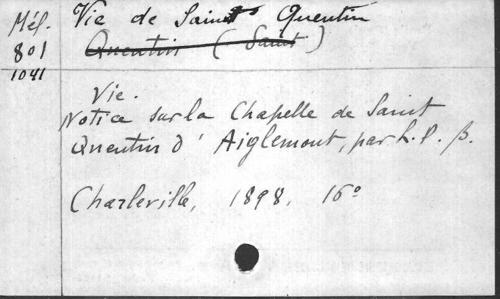 Mél.
801
1041
Vie de Saint Quentin
Quentin (Saint)
Vie.
Notice sur la Chapelle de Saint
Quentin d'Aiglemont, par L. P. B.
Charleville, 1898, 16°